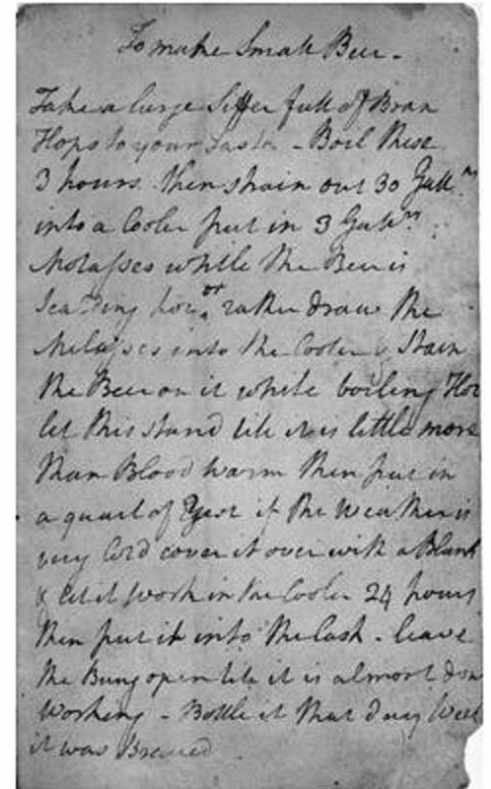 To make Small Beer -
Take a large Siffer full of Bran
Hops to your Taste - Boil these
3 hours. then strain out 30 Gall.ns
into a Cooler put in 3 Gall.ns
Molasses while the Beer is
Scalding hot or rather draw the
Molasses into the Cooler & Strain
the Beer on it while boiling Hot
let this stand till it is little more
than Blood warm then put in
a quart of Yest if the Weather is
very Cold cover it over with a Blank
& let it work in the Cooler 24 hours
then put it into the Cask - leave
the Bung open till it is almost don
Working - Bottle it that day Week
it was Brewed